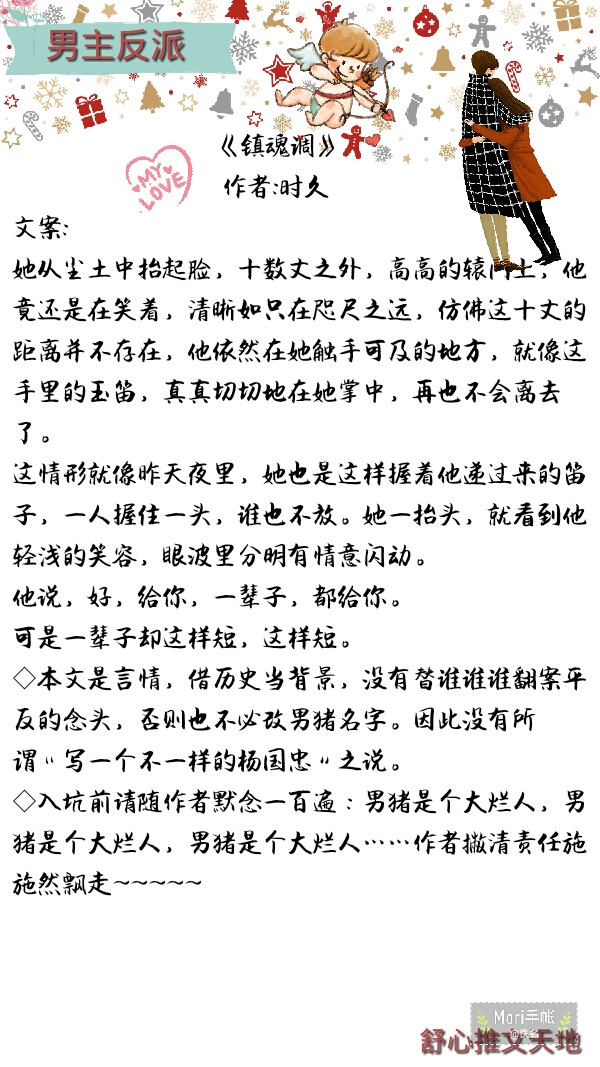 男主反派
《镇魂调》
MY
LOVE
作者:时久
文案:
她从尘土中抬起脸，十数丈之外，高高的辕门上，他
竟还是在笑着，清晰如只在咫尺之远，仿佛这十丈的
距离并不存在，他依然在她触手可及的地方，就像这
手里的玉笛，真真切切地在她掌中，再也不会离去
了。
这情形就像昨天夜里，她也是这样握着他递过来的笛
子，一人握住一头，谁也不放。她一抬头，就看到他
轻浅的笑容，眼波里分明有情意闪动。
他说，好，给你，一辈子，都给你。
可是一辈子却这样短，这样短。
◇本文是言情，借历史当背景，没有替谁谁谁翻案平
反的念头，否则也不必改男猪名字。因此没有所
谓“写一个不一样的杨国忠”之说。
◇入坑前请随作者默念一百遍：男猪是个大烂人，男
猪是个大烂人，男猪是个大烂人……作者撇清责任施
施然飘走~~~~~
Mori手帐
舒心推文天地